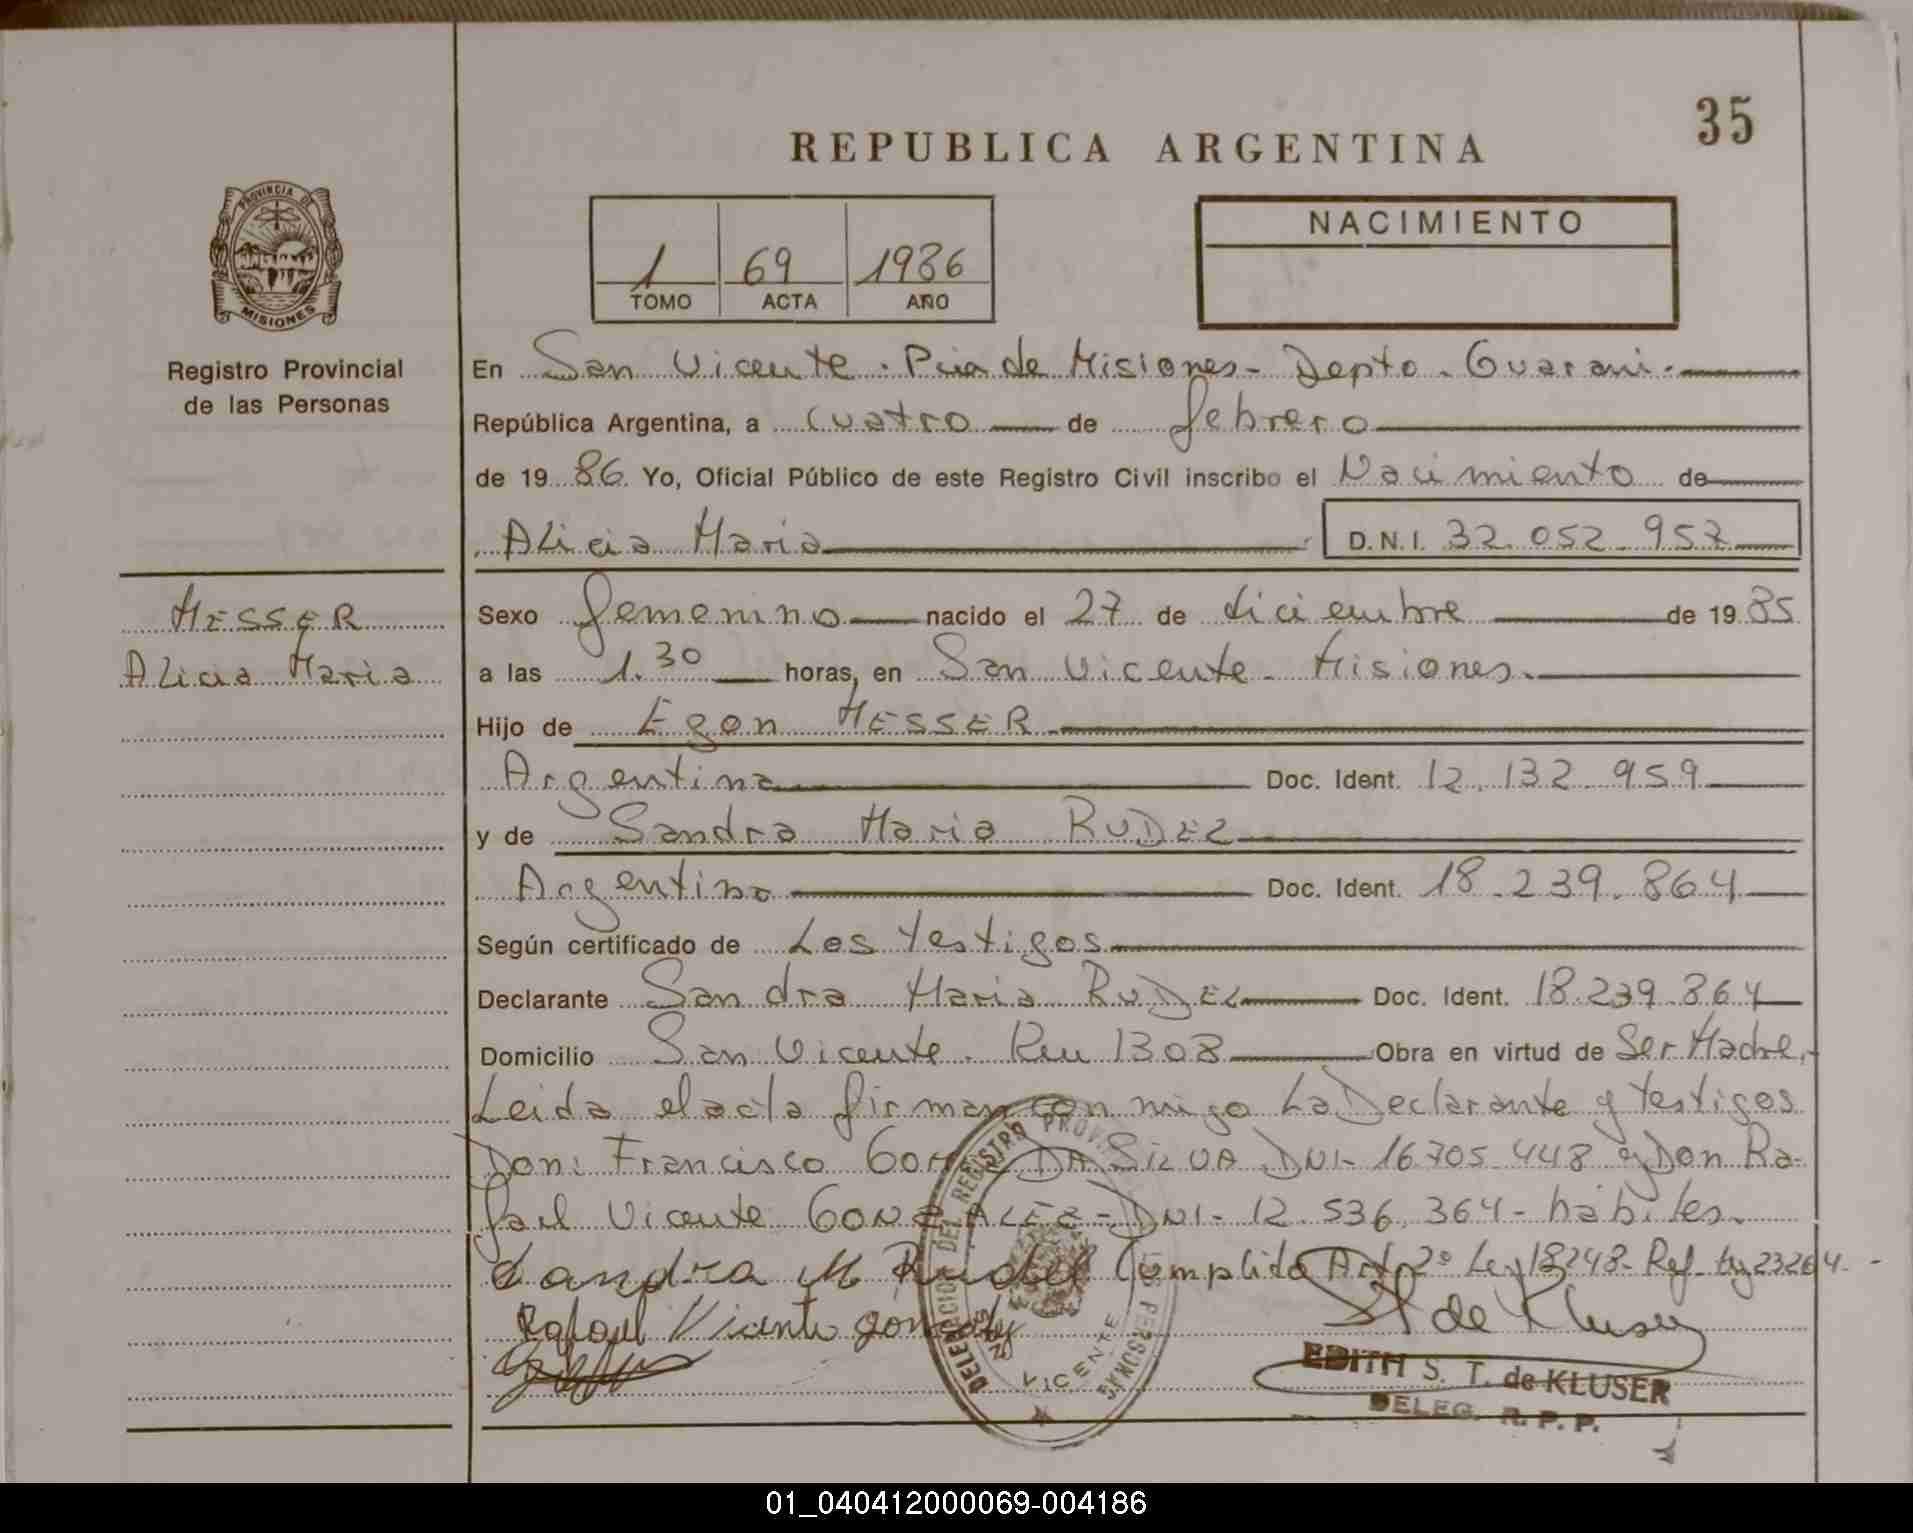 35
REPUBLICA ARGENTINA
PROVINCIA DE
MISIONES
Registro Provincial
de las Personas
1 69 1986
TOMO ACTA AÑO
NACIMIENTO
En San Vicente. Pcia de Misiones- Depto. Guarani.
República Argentina, a cuatro de febrero
de 19 86 Yo, Oficial Público de este Registro Civil inscribo el Nacimiento de
Alicia Maria D.N.I. 32.052.957
MESSER
Alicia Maria
Sexo femenino nacido el 27 de diciembre de 19 85
a las 1.30 horas, en San Vicente- Misiones.
Hijo de Egon MESSER
Argentina Doc. Ident. 12.132.959
y de Sandra Maria RUDEL
Argentina Doc. Ident. 18.239.864
Según certificado de Los testigos
Declarante Sandra Maria RUDEL Doc. Ident. 18.239.864
Domicilio San Vicente. 1308 Obra en virtud de Ser Madre.
Leida el acta firman con migo La Declarante y testigos
Don: Francisco DA SILVA DNI- 16.705.448 y Don Ra-
fael Vicente GONZALEZ- DNI- 12.536.364- habiles.
Sandra M Rudel Cumplido Art 2° Ley 18248- Ref. Ley 23264.-
Rafael Vicente gonzalez
S T de Kluser
EDITH S. T. de KLUSER
DELEG. R. P. P.
DELEGACION DEL REGISTRO PROV PERSONAS
VICENTE
01_040412000069-004186